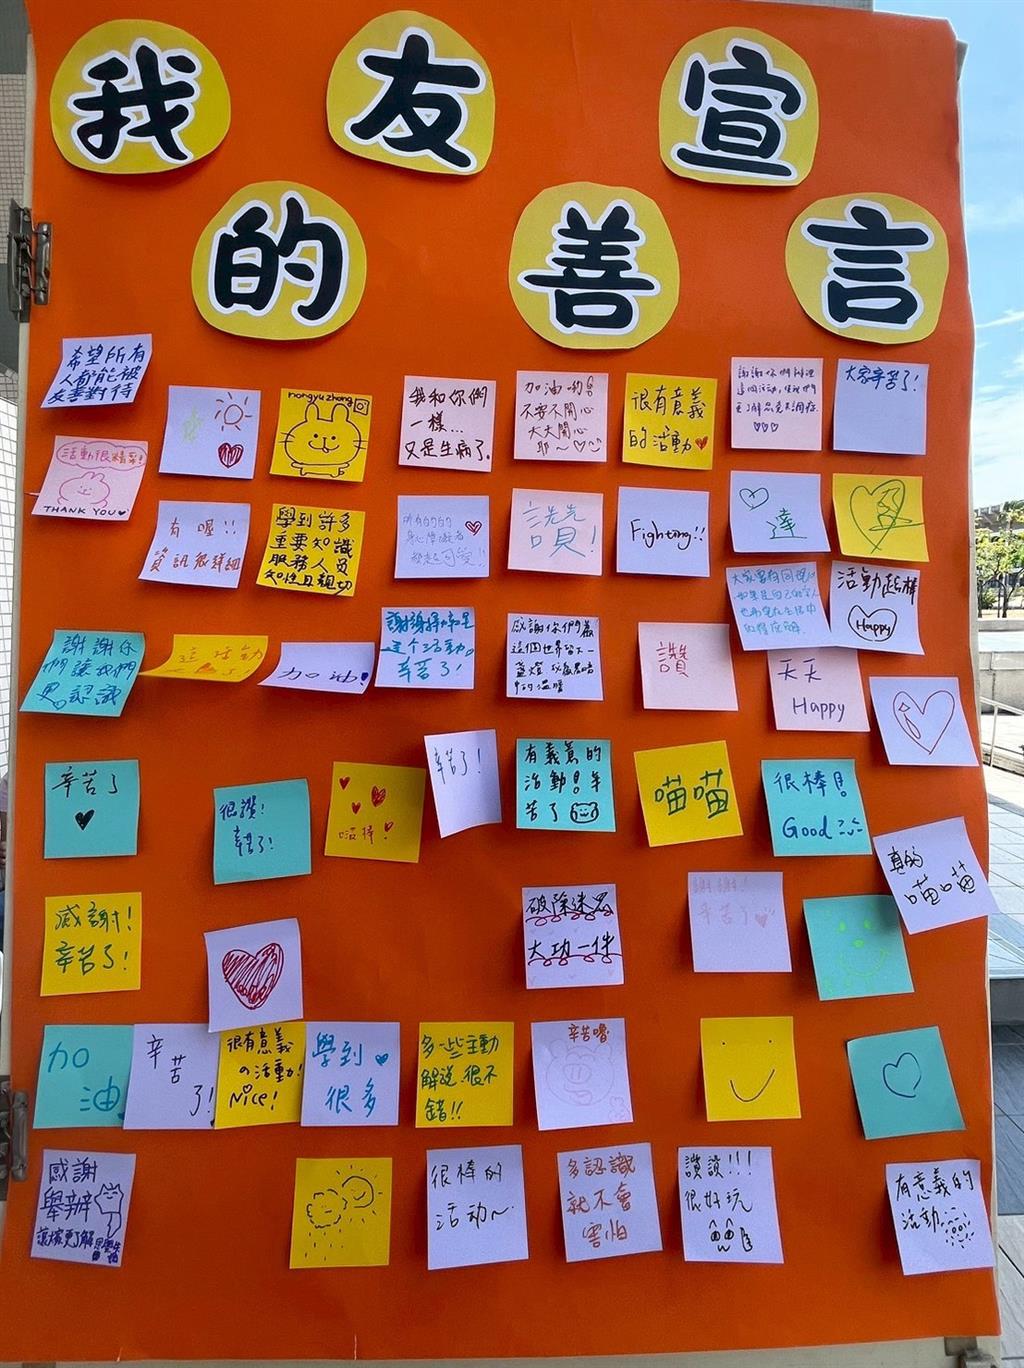 我友宣
的善言
希望所有
人都能被
友善對待
nongyuzhong
我和你們
一樣...
又是生病了.
加油喲
不要不開心
天天開心
耶~♡
很有意義
的活動♥
謝謝你們辦理
這個活動,
♡♡♡
大家辛苦了!
活動很精彩!
THANK YOU♥
有喔!!
資訊很詳細
學到許多
重要知識
服務人員
知性且親切
讚!
Fighting!!
達
活動超棒
Happy
謝謝你
們讓我們
更認識
這活動
加油!
辛苦了!
感謝你們為
這個世界留下一
盞燈
中的溫暖
讚
天天
Happy
辛苦了
♥
很讚!
辛苦了!
啵棒!
辛苦了!
有義意的
活動!辛
苦了
喵喵
很棒!
Good
真的
喵喵
感謝!
辛苦了!
破除迷思
大功一件
謝謝!
辛苦了♥
加
油
辛
苦
了!
很有意義
の活動!
Nice!
學到♥
很多
多一些主動
解說,很不
錯!!
辛苦嚕
感謝
舉辦
讓大家更了解
很棒的
活动~
多認識
就不會
害怕
讚讚!!!
很好玩
有意義的
活動